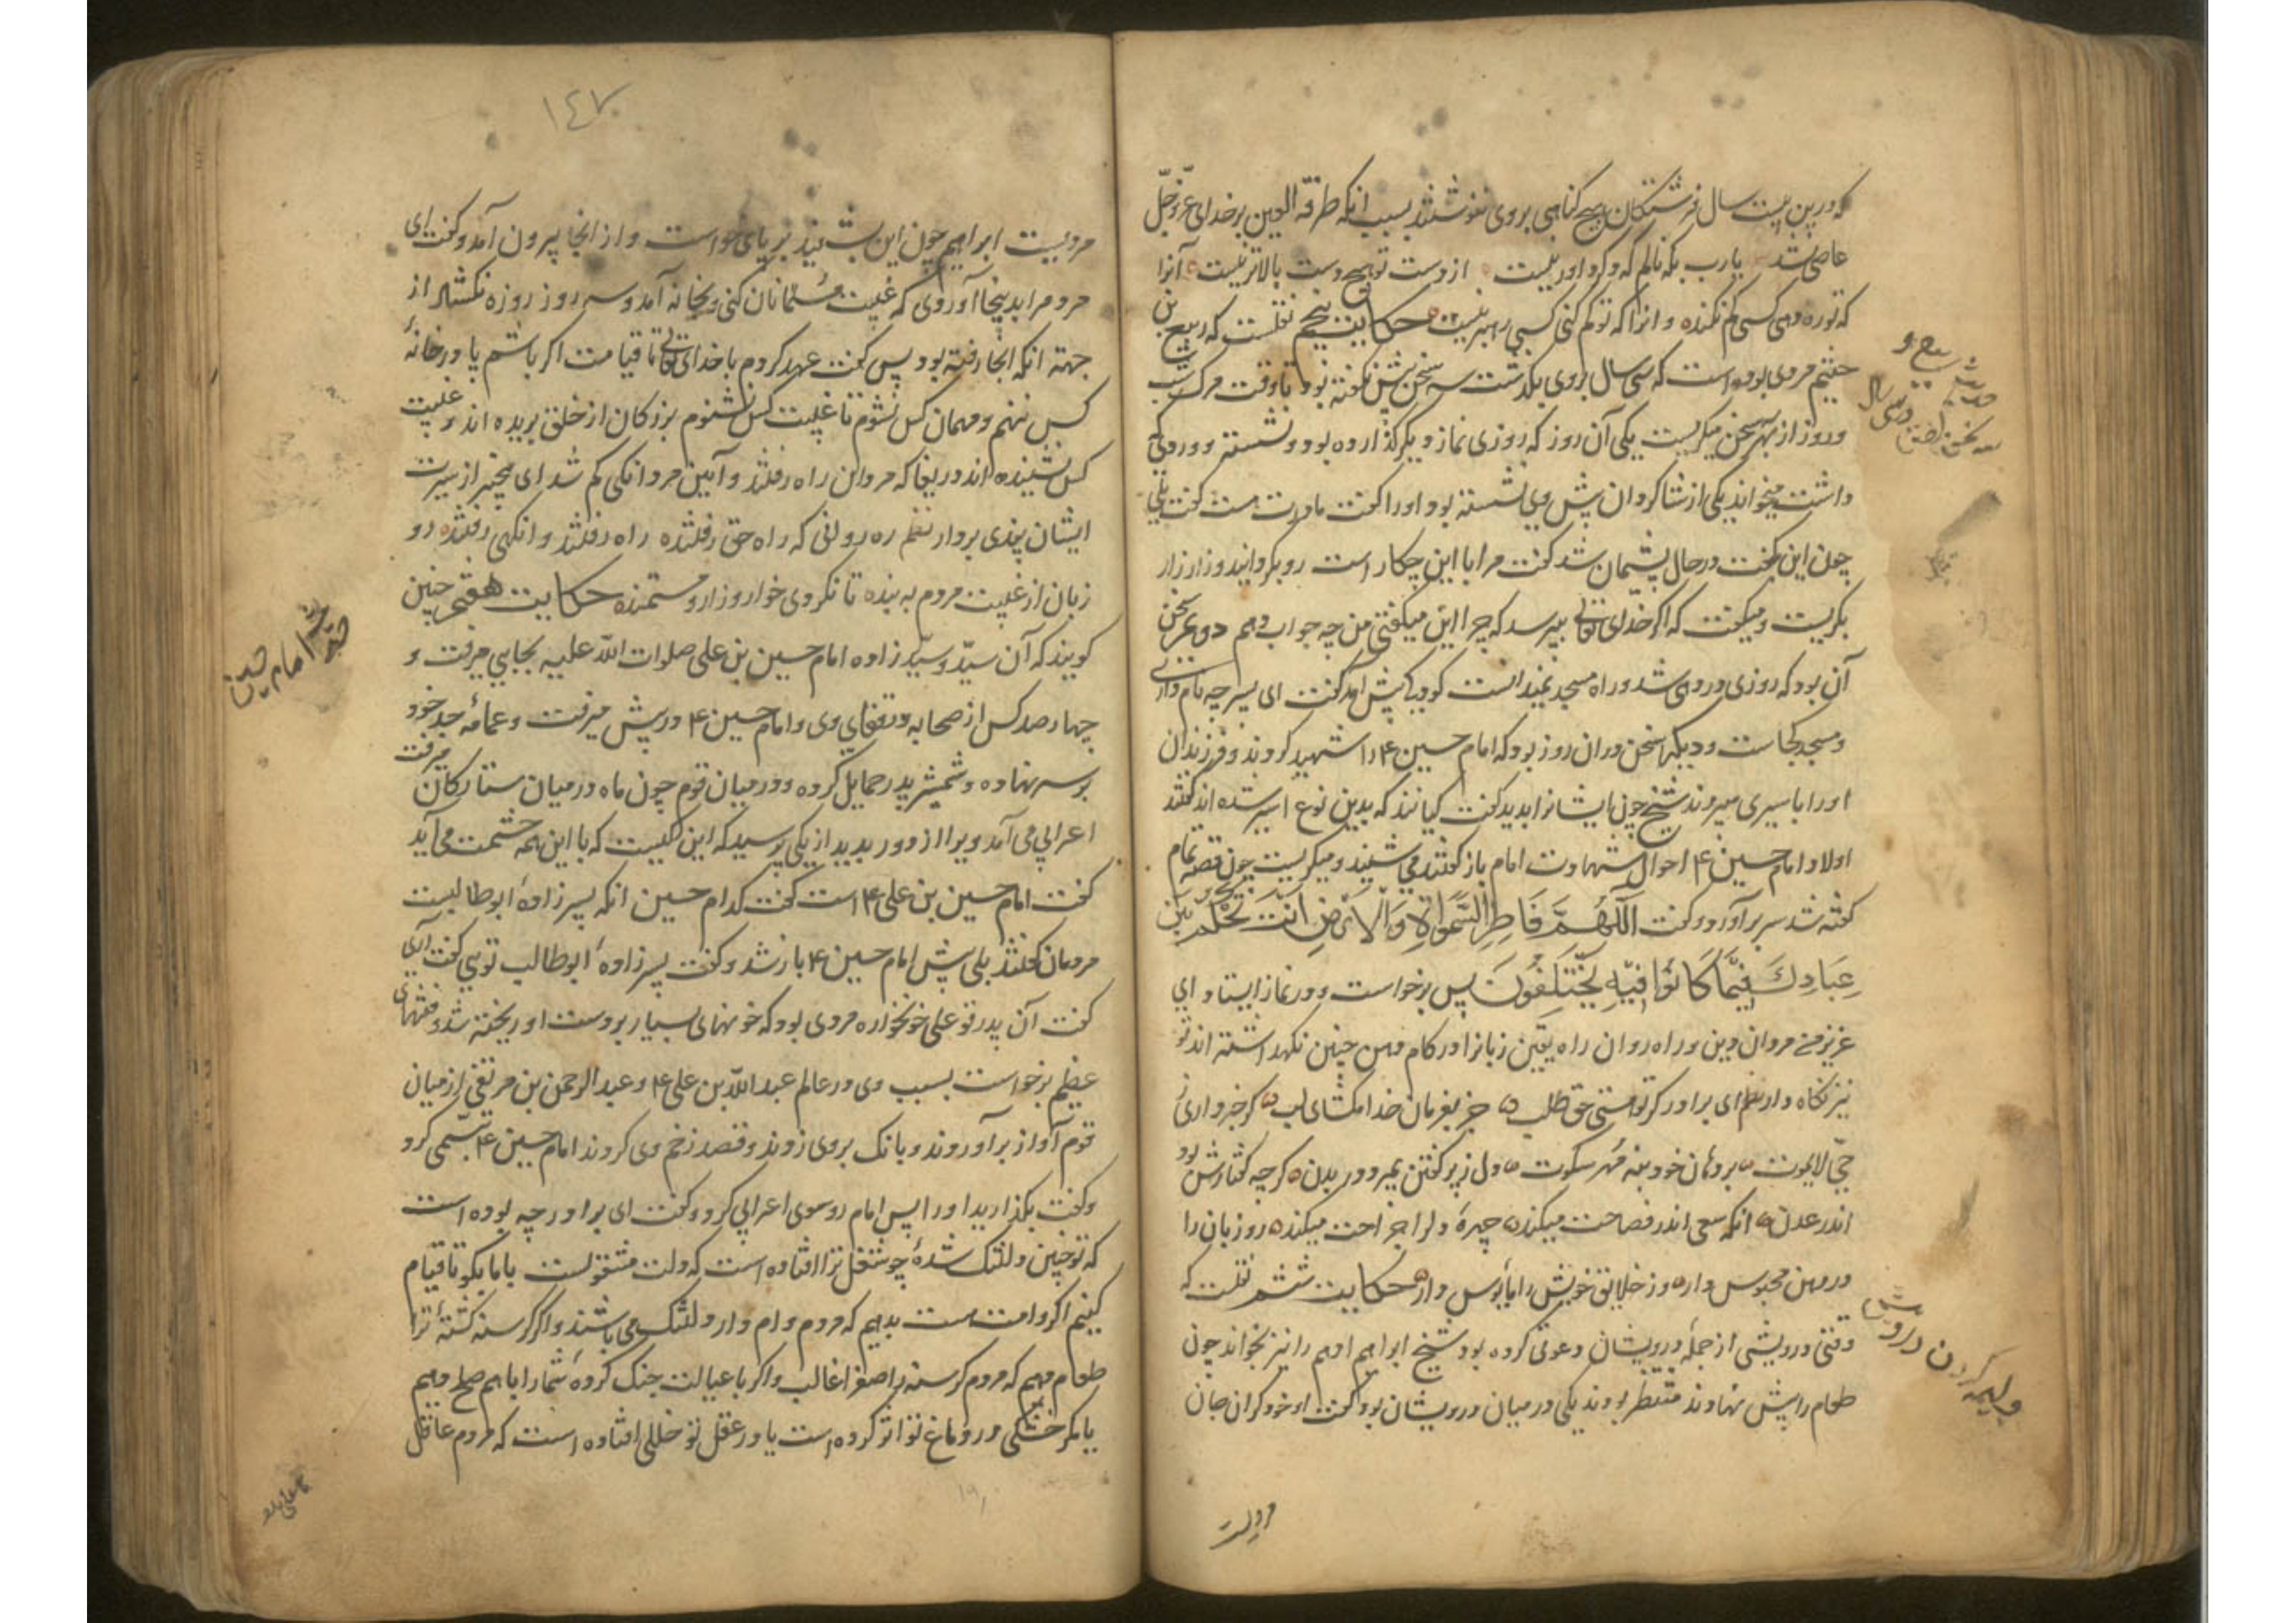 که درین بیست سال فرشتکان هیچ کناهی بر وی ننوشتند بسبب انکه طرفة العین بر خدای عزّ و جلّ
عاصی نشد یا رب بکه نالم که دکر داور نیست از دست تو هیچ دست بالاتر نیست آنرا
که تو ره دهی کسی کم نکند و انرا که تو کم کنی کسی رهبر نیست حکایت پنجم نقلست که ربیع بن
خثیم مردی بوده است که سی سال بروی بکذشت سه سخن بیش نکفته بود تا وقت مرک شب
و روز از بهر سه سخن میکریست یکی آن روز که روزی نماز دیکر کذارده بود و نشسته و وردی که
داشت میخواند یکی از شاکردان پیش وی نشسته بود او را کفت مادرت هست کفت بلی
چون این بکفت در حال پشیمان شد کفت مرا با این چکار است رو بکردانید و زار زار
بکریست و میکفت که اکر خدای تعالی بپرسد که چرا این میکفتی من چه جواب دهم دویم سخن
آن بود که روزی در دهی شد و راه مسجد نمیدانست کودکی پیش امد کفت ای پسر چه نام داری
و مسجد کجاست و دیکر سخن در ان روز بود که امام حسین ۴ را شهید کردند و فرزندان
او را باسیری میبردند شیخ چون ایشانرا بدید کفت کیانند که بدین نوع اسیر شده اند کفتند
اولاد امام حسین ۴ احوال شهادت امام باز کفتند می شنید و میکریست چون قصه تمام
کفته شد سر برآورد و کفت اللّهمّ فاطر السّموات والارض انت تحکم بین
عبادک فیما کانوا فیه یختلفون پس برخواست و در نماز ایستاد ای
عزیز من مردان دین و راه روان راه یقین زبانرا در کام دهن چنین نکهداشته اند تو
نیز نکاه دار نظم ای برادر کر تو هستی حق طلب جز بفرمان خدا مکشای لب کر خبر داری ز
حیّ لایموت بر دهان خود بنه مهر سکوت دل ز پر کفتن بمیرد در بدن کرچه کفتارش بود
اندر عدن انکه سعی اندر فصاحت میکند چهرهٔ دلرا جراحت میکند رو زبان را
در دهن محبوس دار وز خلایق خویش را مأیوس دار حکایت ششم نقلست که
وقتی درویشی از جملهٔ درویشان دعوتی کرده بود شیخ ابراهیم ادهم را نیز بخواند چون
طعام را پیش نهادند منتظر بودند یکی در میان درویشان بود کفت او خود کران جان
مردیست
ربیع و
سه سخن
در سی سال
ولیمه کردن درویش
۱٤۷
مردیست ابراهیم چون این بشنید بر پای خواست و از انجا بیرون آمد و کفت ای
مرد مرا بدینجا آوردی که غیبت مسلمانان کنی و بخانه آمد و سه روز روزه نکشاد از
جهته انکه انجا رفته بود پس کفت عهد کردم با خدای تعالی تا قیامت اکر باشم پا در خانهٔ
کس ننهم و مهمان کس نشوم تا غیبت کس نشنوم بزرکان از خلق بریده اند و غیبت
کس نشنیده اند دریغا که مردان راه رفتند و آیین مردانکی کم شد ای بیخبر از سیرت
ایشان پندی بردار نظم ره روانی که راه حق رفتند راه رفتند و انکهی رفتند رو
زبان از غیبت مردم به بند تا نکردی خوار و زار و مستمند حکایت هفتم چنین
کویند که آن سیّد و سیّد زاده امام حسین بن علی صلوات اللّه علیه بجایی میرفت و
چهار صد کس از صحابه و رفقای وی و امام حسین ۴ در پیش میرفت و عمامهٔ جد خود
بر سر نهاده و شمشیر پدر حمایل کرده و در میان قوم چون ماه در میان ستارکان میرفت
اعرابی می آمد ویرا از دور بدید از یکی پرسید که این کیست که با این همه حشمت می آید
کفت امام حسین بن علی ۴ است کفت کدام حسین انکه پسر زادهٔ ابو طالبست
مردمان کفتند بلی پیش امام حسین ۴ باز شد و کفت پسر زادهٔ ابوطالب تویی کفت آری
کفت آن پدر تو علی خونخواره مردی بود که خونهای بسیار بر دست او ریخته شد و فتنهای
عظیم برخواست بسبب وی در عالم عبد اللّه بن علی ۴ و عبد الرحمن بن مرتضی از میان
قوم آواز برآوردند و بانک بر وی زدند و قصد زخم وی کردند امام حسین ۴ تبسّمی کرد
و کفت بکذارید او را پس امام رو سوی اعرابی کرد و کفت ای برادر چه بوده است
که تو چنین دلتنک شدهٔ چو شغل ترا افتاده است که دلت مشغولست با ما بکو تا قیام
کنیم اکر وامت هست بدهیم که مردم وام دار دلتنک می باشند و اکر کرسنه کشتهٔ ترا
طعام دهیم که مردم کرسنه را صفرا غالب و اکر با عیالت جنک کردهٔ شما را با هم صلح دهیم
یا مکر خشکی در دماغ تو اثر کرده است یا در عقل تو خللی افتاده است که مردم عاقل
امام حسین